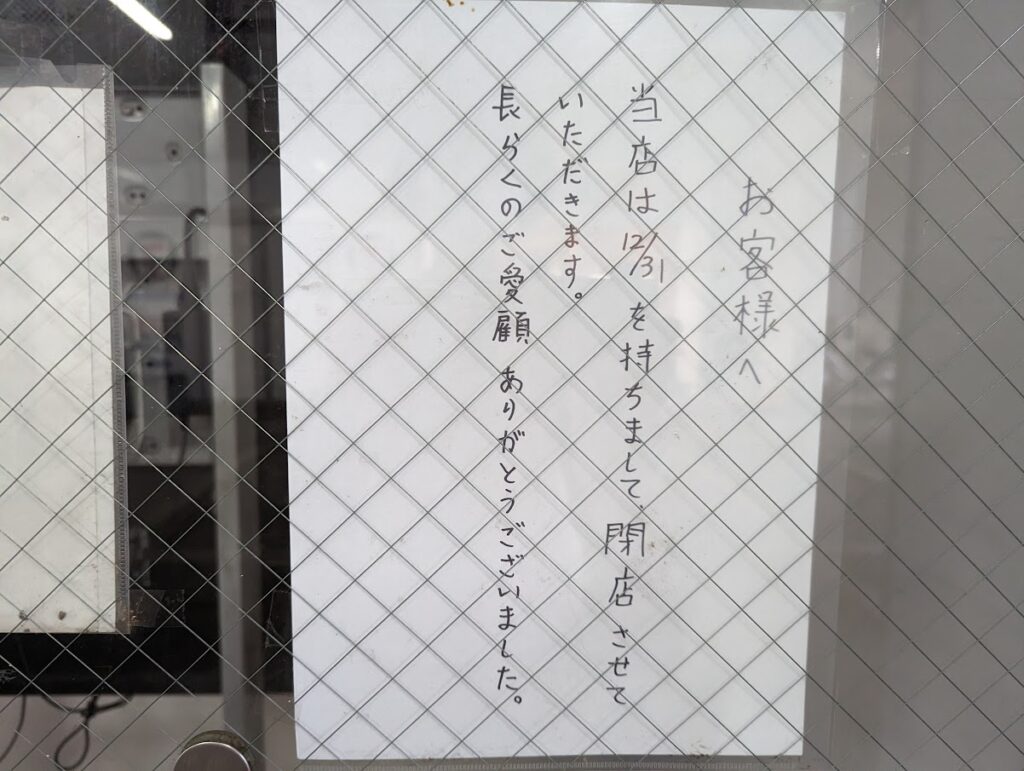 お客様へ
当店は12/31を持ちまして、閉店させて
いただきます。
長らくのご愛顧 ありがとうございました。